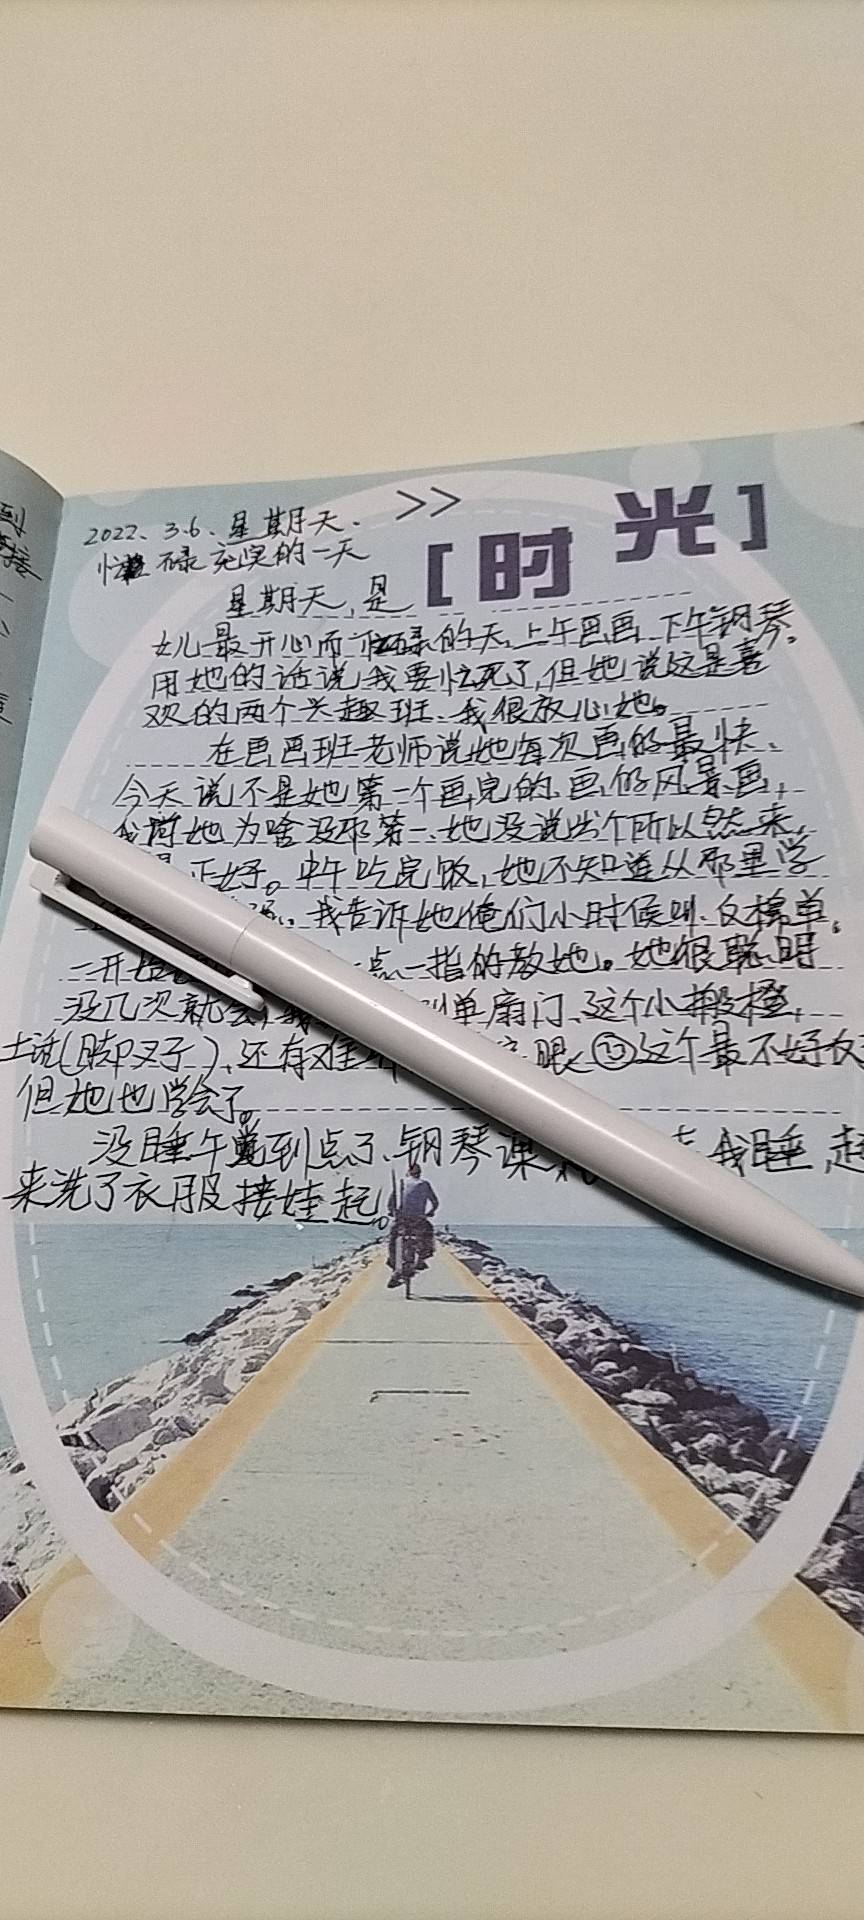 2022、3.6、星期天、
>>
[时光]
忙碌充实的一天
星期天,是
女儿最开心而忙碌的天、上午画画、下午钢琴。
用她的话说我要忙死了,但她说这是喜
欢的两个兴趣班、我很放心她。
在画画班老师说她每次画的最快、
今天说不是她第一个画完的、画的风景画,
她为啥没那第一、她没说出个所以然来,
正好。中午吃完饭,她不知道从那里学
我告诉她俺们小时候叫、反棉单。
一开 点一指的教她。她很聪明
没几次就会, 单扇门、这个小搬橙,
土话(脚叉子)、还有难 眼、这个最不好反
但她也学会了。
没睡午觉到点了、钢琴课 我睡,起
来洗了衣服接娃起。